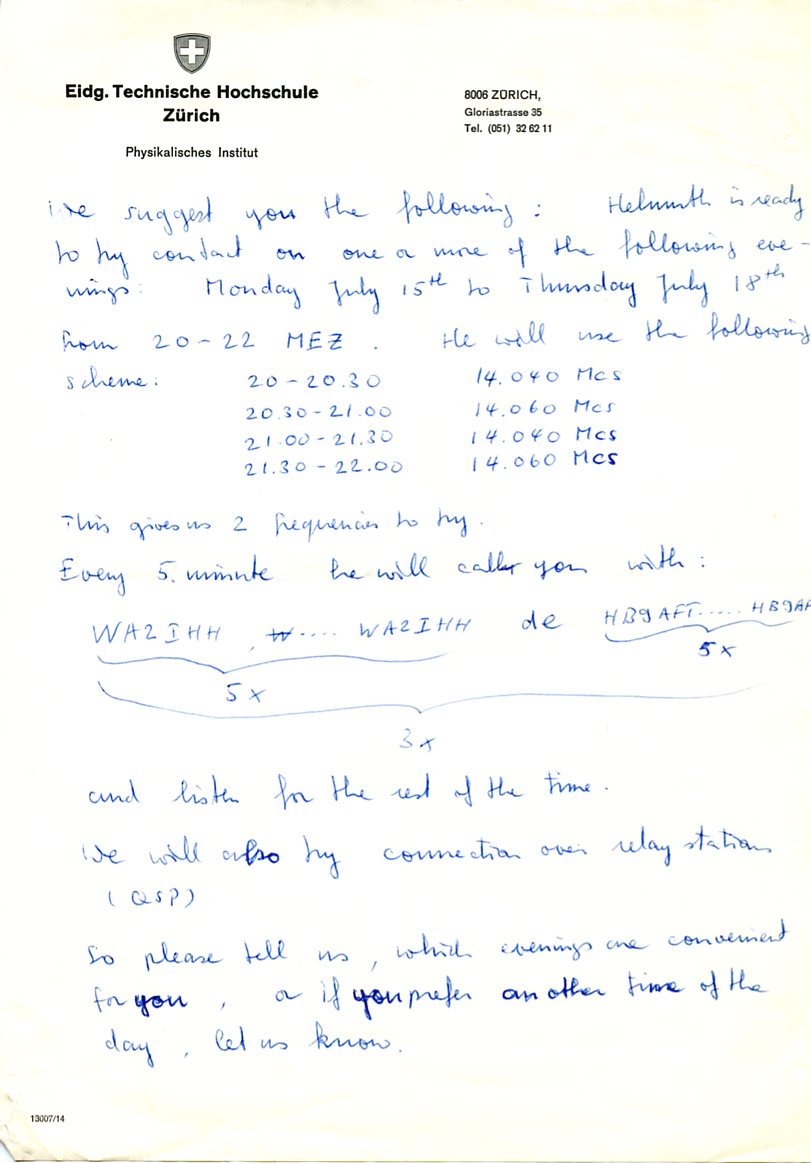 Eidg. Technische Hochschule
Zürich
Physikalisches Institut
8006 ZÜRICH,
Gloriastrasse 35
Tel. (051) 32 62 11
We suggest you the following : Helmuth is ready
to try contact on one or more of the following eve-
nings: Monday July 15th to Thursday July 18th
from 20-22 MEZ . He will use the following
scheme: 20-20.30 14.040 Mcs
20.30-21.00 14.060 Mcs
21.00-21.30 14.040 Mcs
21.30-22.00 14.060 Mcs
This gives us 2 frequencies to try.
Every 5. minute he will call you with :
WA2IHH , ..... WA2IHH de HB9AFT..... HB9AF
5x
5x
3x
and listen for the rest of the time.
We will also try connection over relay stations
(QSP)
So please tell us , which evenings are convenient
for you , or if you prefer another time of the
day , let us know.
13007/14